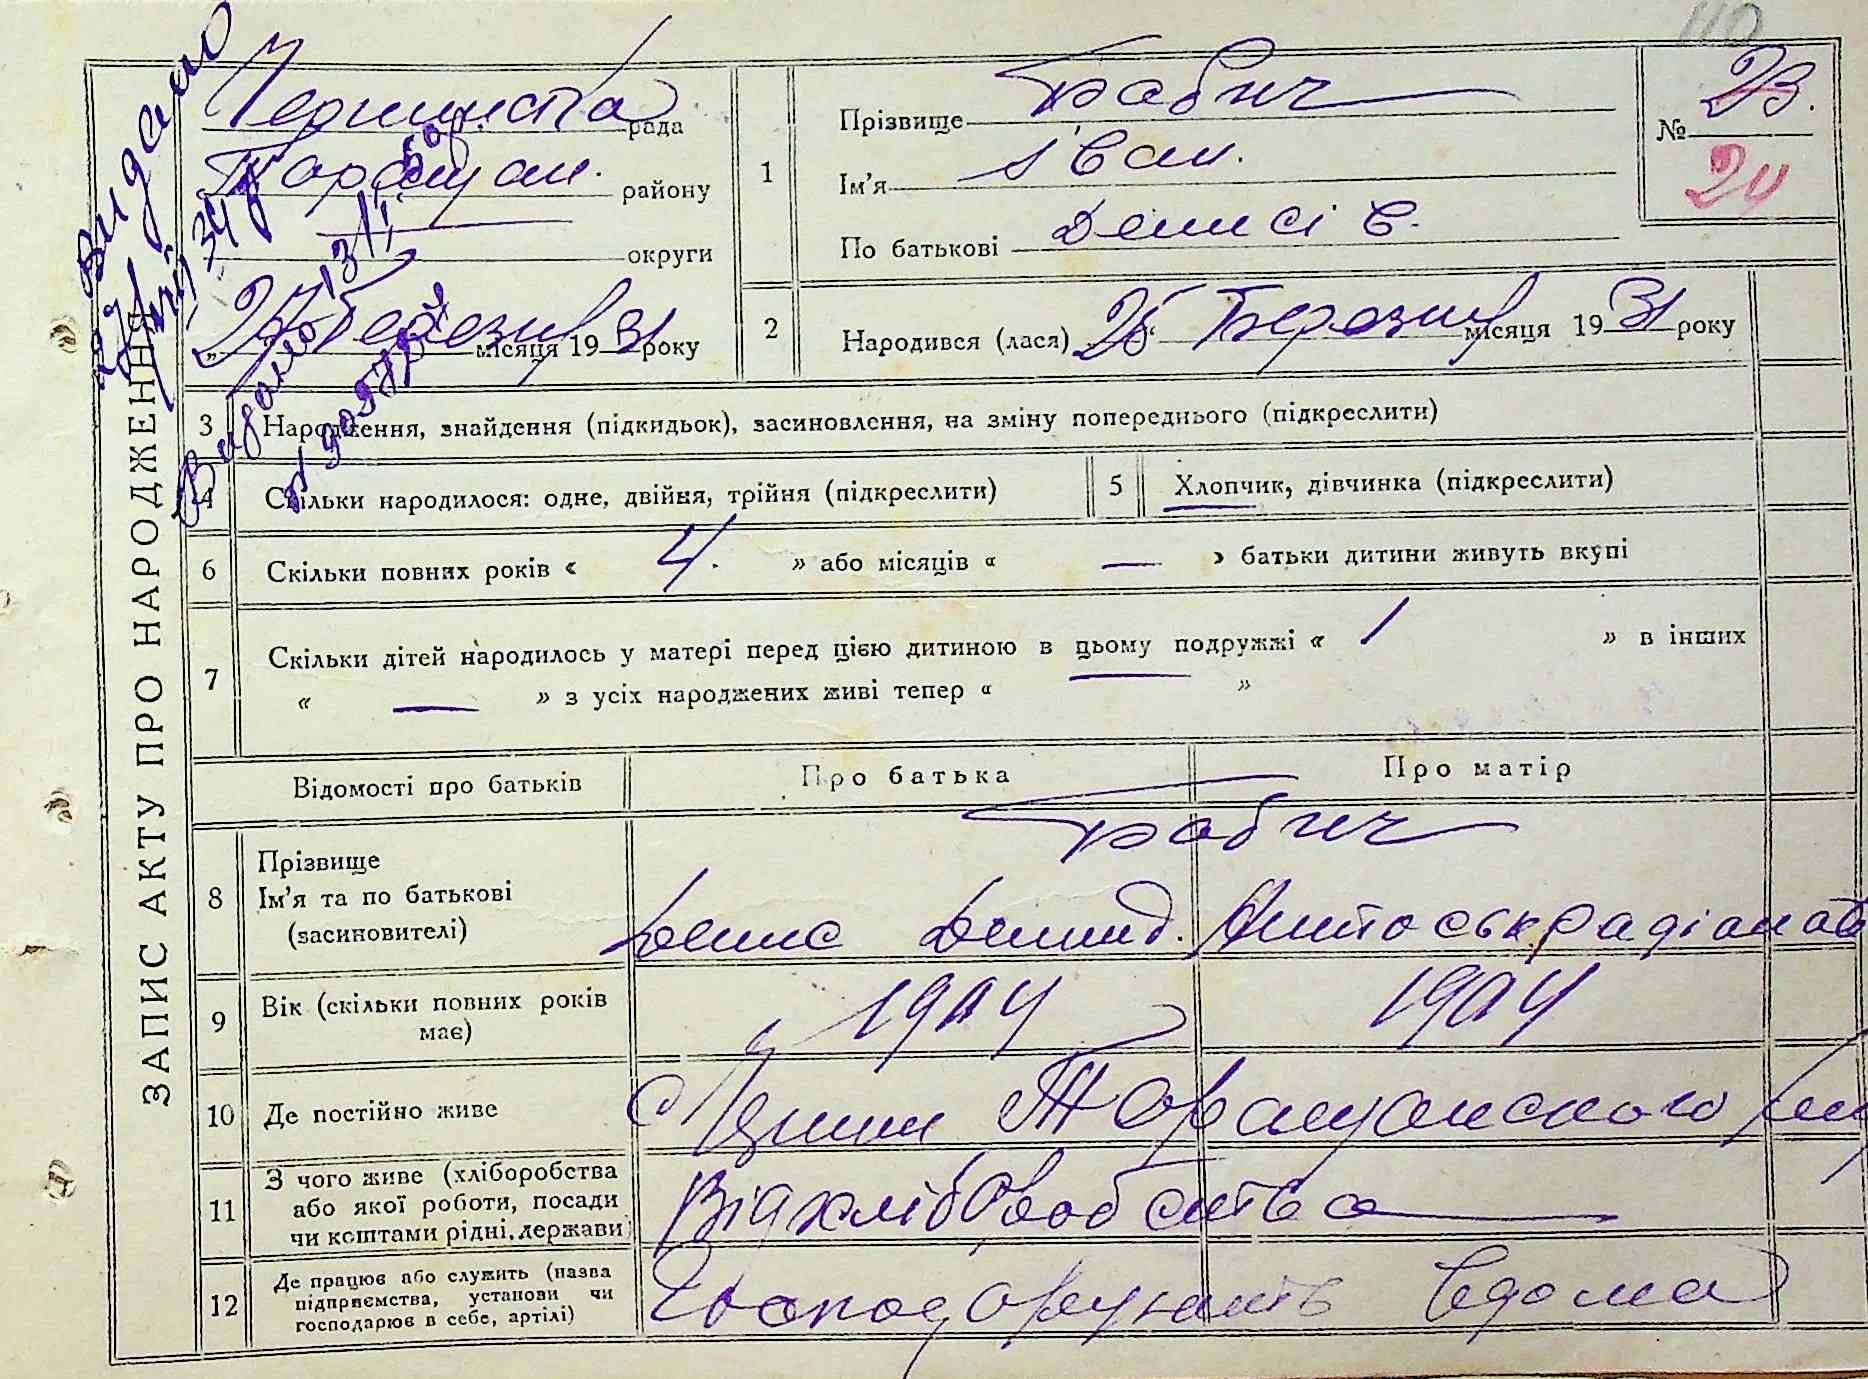 110
Видано
рада
Таращан. району
округи
березня місяця 1931 року
1
Прізвище Бабич
Ім'я Іван.
По батькові Денисів.
№ 23.
24
2
Народився (лася) „25“ Березня місяця 1931 року
ЗАПИС АКТУ ПРО НАРОДЖЕННЯ
3 Народження, знайдення (підкидьок), засиновлення, на зміну попереднього (підкреслити)
4 Скільки народилося: одне, двійня, трійня (підкреслити)
5 Хлопчик, дівчинка (підкреслити)
6 Скільки повних років « 4. » або місяців « — » батьки дитини живуть вкупі
7 Скільки дітей народилось у матері перед цією дитиною в цьому подружжі « 1 » в інших
« — » з усіх народжених живі тепер « »
Відомості про батьків Про батька Про матір
8 Прізвище Бабич
Ім'я та по батькові
(засиновителі) Денис Демид.
9 Вік (скільки повних років має) 1904 1904
10 Де постійно живе с Таращанского
11 З чого живе (хліборобства
або якої роботи, посади
чи коштами рідні, держави) Від хліборобства
12 Де працює або служить (назва
підприємства, установи чи
господарює в себе, артілі) Господарують вдома